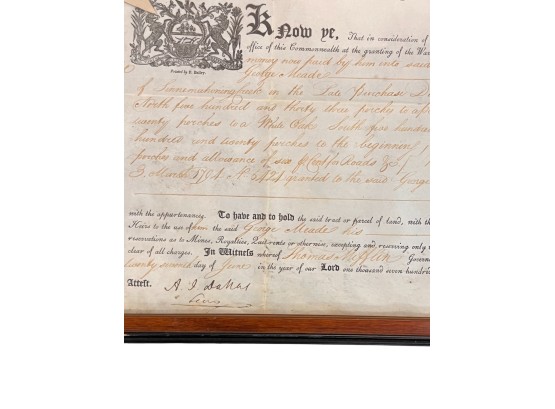 Know ye, That in consideration of
office of this Commonwealth at the granting of the War
money now paid by him into said
Printed by F. Bailey.
George Meade
of Sinnemahoning Creek in the Late Purchase
North five hundred and thirty three perches to a
twenty perches to a White Oak South five hundred
hundred and twenty perches to the beginning
perches and allowance of six Cent for Roads &c
3. March 1794 No 2424 granted to the said George
with the appurtenances. To have and to hold the said tract or parcel of land, with th
Heirs to the use of him the said George Meade his
reservations as to Mines, Royalties, Quit-rents or otherwise, excepting and reserving only
clear of all charges. In Witness whereof Thomas Mifflin Govern
twenty second day of June in the year of our Lord one thousand seven hundred
Attest. A. J. Dallas